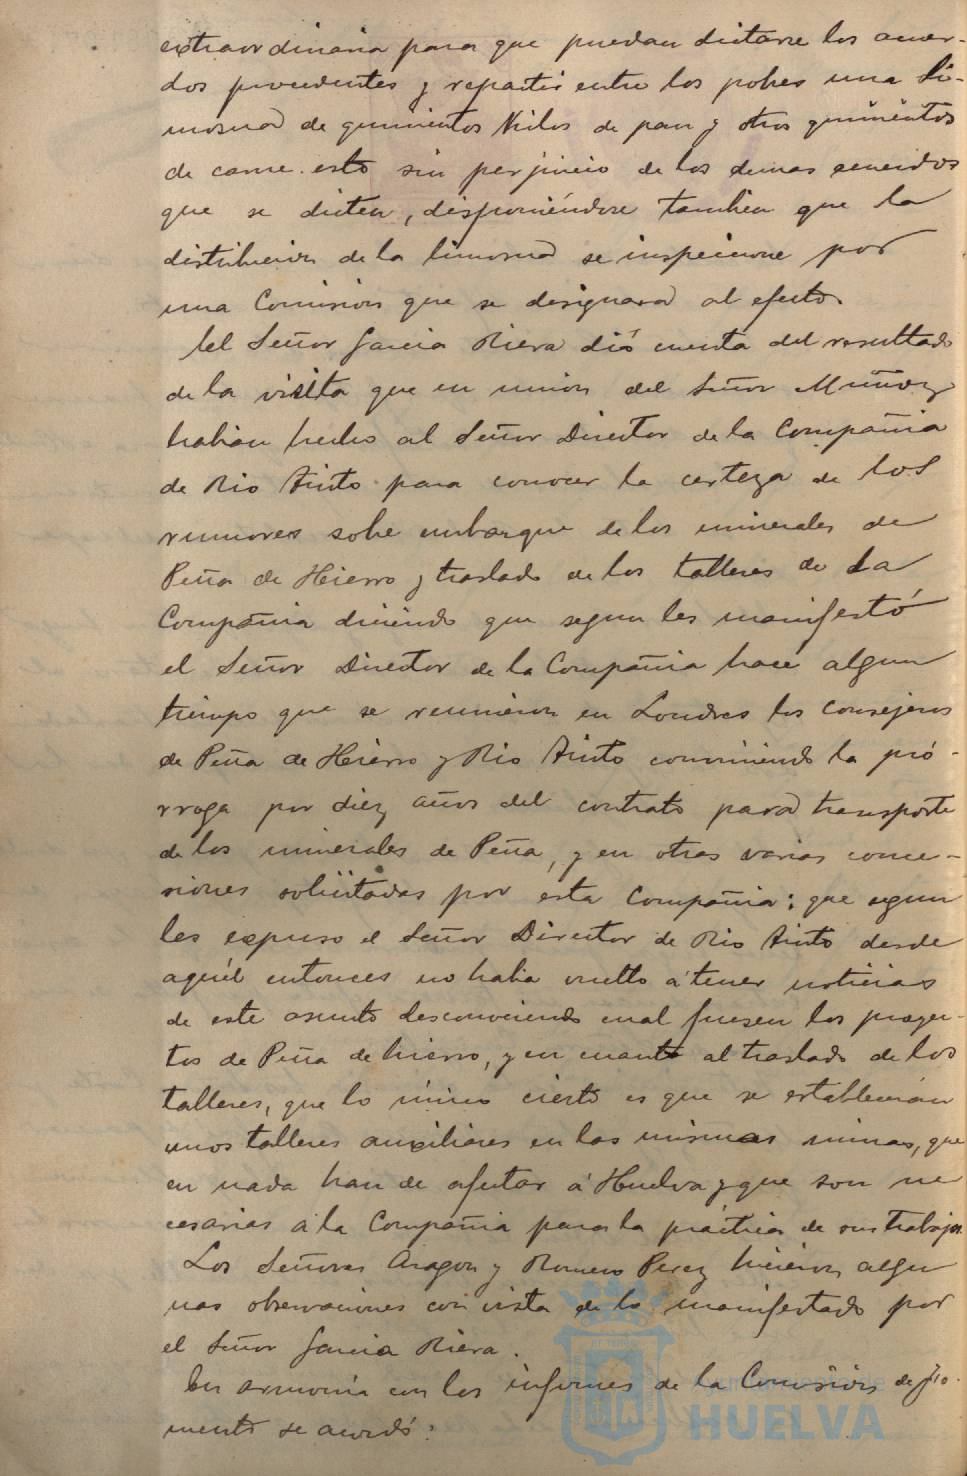 extraordinaria para que puedan dictarse los acuer-
dos procedentes y repartir entre los pobres una li-
mosna de quinientos Kilos de pan y otros quinientos
de carne. esto sin perjuicio de los demas acuerdos
que se dicten, disponiéndose tambien que la
distribucion de la limosna se inspecione por
una Comision que se designara al efecto.
El Señor Garcia Riera dió cuenta del resultado
de la visita que en union del Señor Muñoz
habian hecho al Señor Director de la Compañia
de Rio Tinto para conocer la certeza de los
rumores sobre embarque de los minerales de
Peña de Hierro y traslado de los talleres de la
Compañia diciendo que segun les manifestó
el Señor Director de la Compañia hace algun
tiempo que se reunieron en Londres los consejeros
de Peña de Hierro y Rio Tinto conviniendo la pró-
rroga por diez años del contrato para transporte
de los minerales de Peña, y en otras varias conce-
siones solicitadas por esta Compañia; que segun
les expuso el Señor Director de Rio Tinto desde
aquél entonces no habia vuelto á tener noticias
de este asunto desconociendo cual fuesen los proyec-
tos de Peña de hierro, y en cuanto al traslado de los
talleres, que lo único cierto es que se establecerán
unos talleres auxiliares en las mismas minas, que
en nada han de afectar á Huelva y que son ne
cesarias á la Compañia para la práctica de sus trabajos.
Los Señores Aragon y Romero Perez hicieron algu
nas observaciones con vista de lo manifestado por
el Señor Garcia Riera.
En armonia con los informes de la Comision de fo-
mento se acordó:
Ayuntamiento de
HUELVA